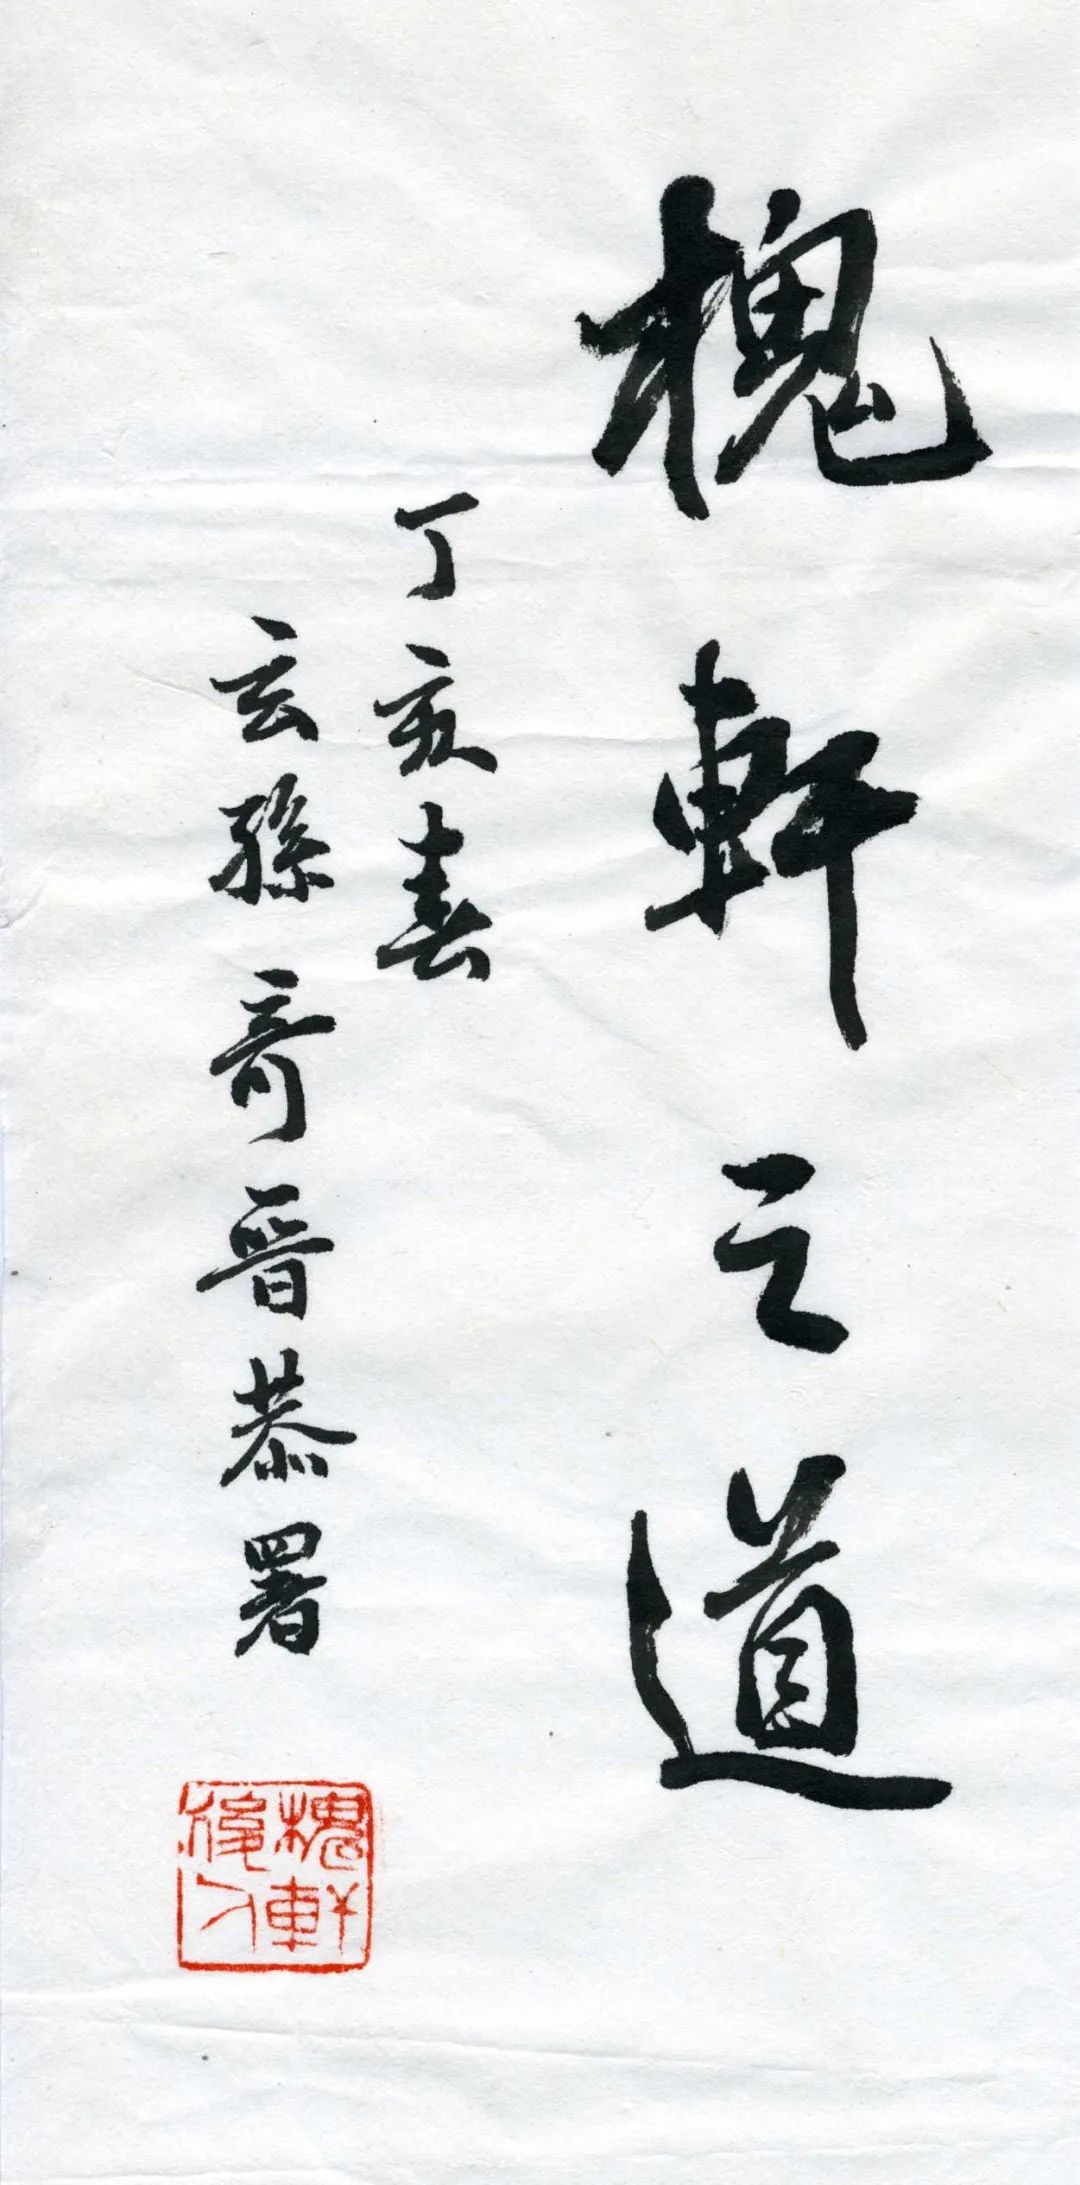 槐軒之道
丁亥春
玄孫奇晋恭署
槐軒後人